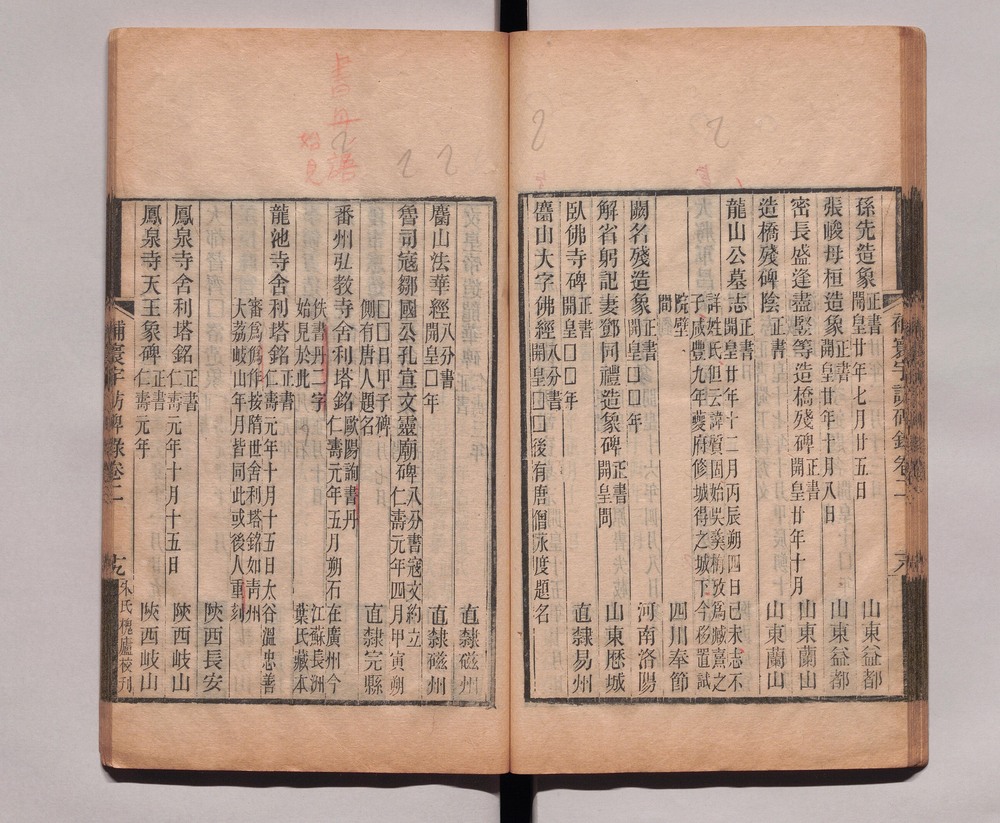 孫先造象 正書 開皇廿年七月廿五日 山東益都
張峻母桓造象 正書 開皇廿年十月八日 山東益都
密長盛逢盡堅等造橋殘碑 正書 開皇廿年十月 山東蘭山
造橋殘碑陰 正書 山東蘭山
龍山公墓志 正書 開皇廿年十二月丙辰朔四日己未志不
詳姓氏但云諱質固始吳羹梅攷爲臧熹之
子咸豐九年夔府修城得之城下今移置試
院壁
間 四川奉節
闕名殘造象 正書 開皇□□年 河南洛陽
解省躬記妻鄧同禮造象碑 正書 開皇間 山東厯城
臥佛寺碑 正書 開皇□□年 直隸易州
麕山大字佛經 八分書 開皇□□後有唐僧永度題名
補寰宇訪碑錄卷二
直隸磁州
麕山法華經 八分書 開皇□年 直隸磁州
魯司寇鄒國公孔宣文靈廟碑 八分書寇文約立 仁壽元年四月甲寅朔
□□日甲子碑
側有唐人題名 直隸完縣
番州弘教寺舍利塔銘 歐陽詢書丹 仁壽元年五月朔石在廣州今
佚書丹二字
始見於此 江蘇長洲
葉氏藏本
龍池寺舍利塔銘 正書 仁壽元年十月十五日太谷溫忠善
審爲僞作按隋世舍利塔銘如青州
大荔岐山年月皆同此或後人重刻
陝西長安
鳳泉寺舍利塔銘 正書 仁壽元年十月十五日 陝西岐山
鳳泉寺天王象碑 正書 仁壽元年 陝西岐山
補寰宇訪碑錄卷二
十九
朱氏槐廬校刊
書丹語
始見